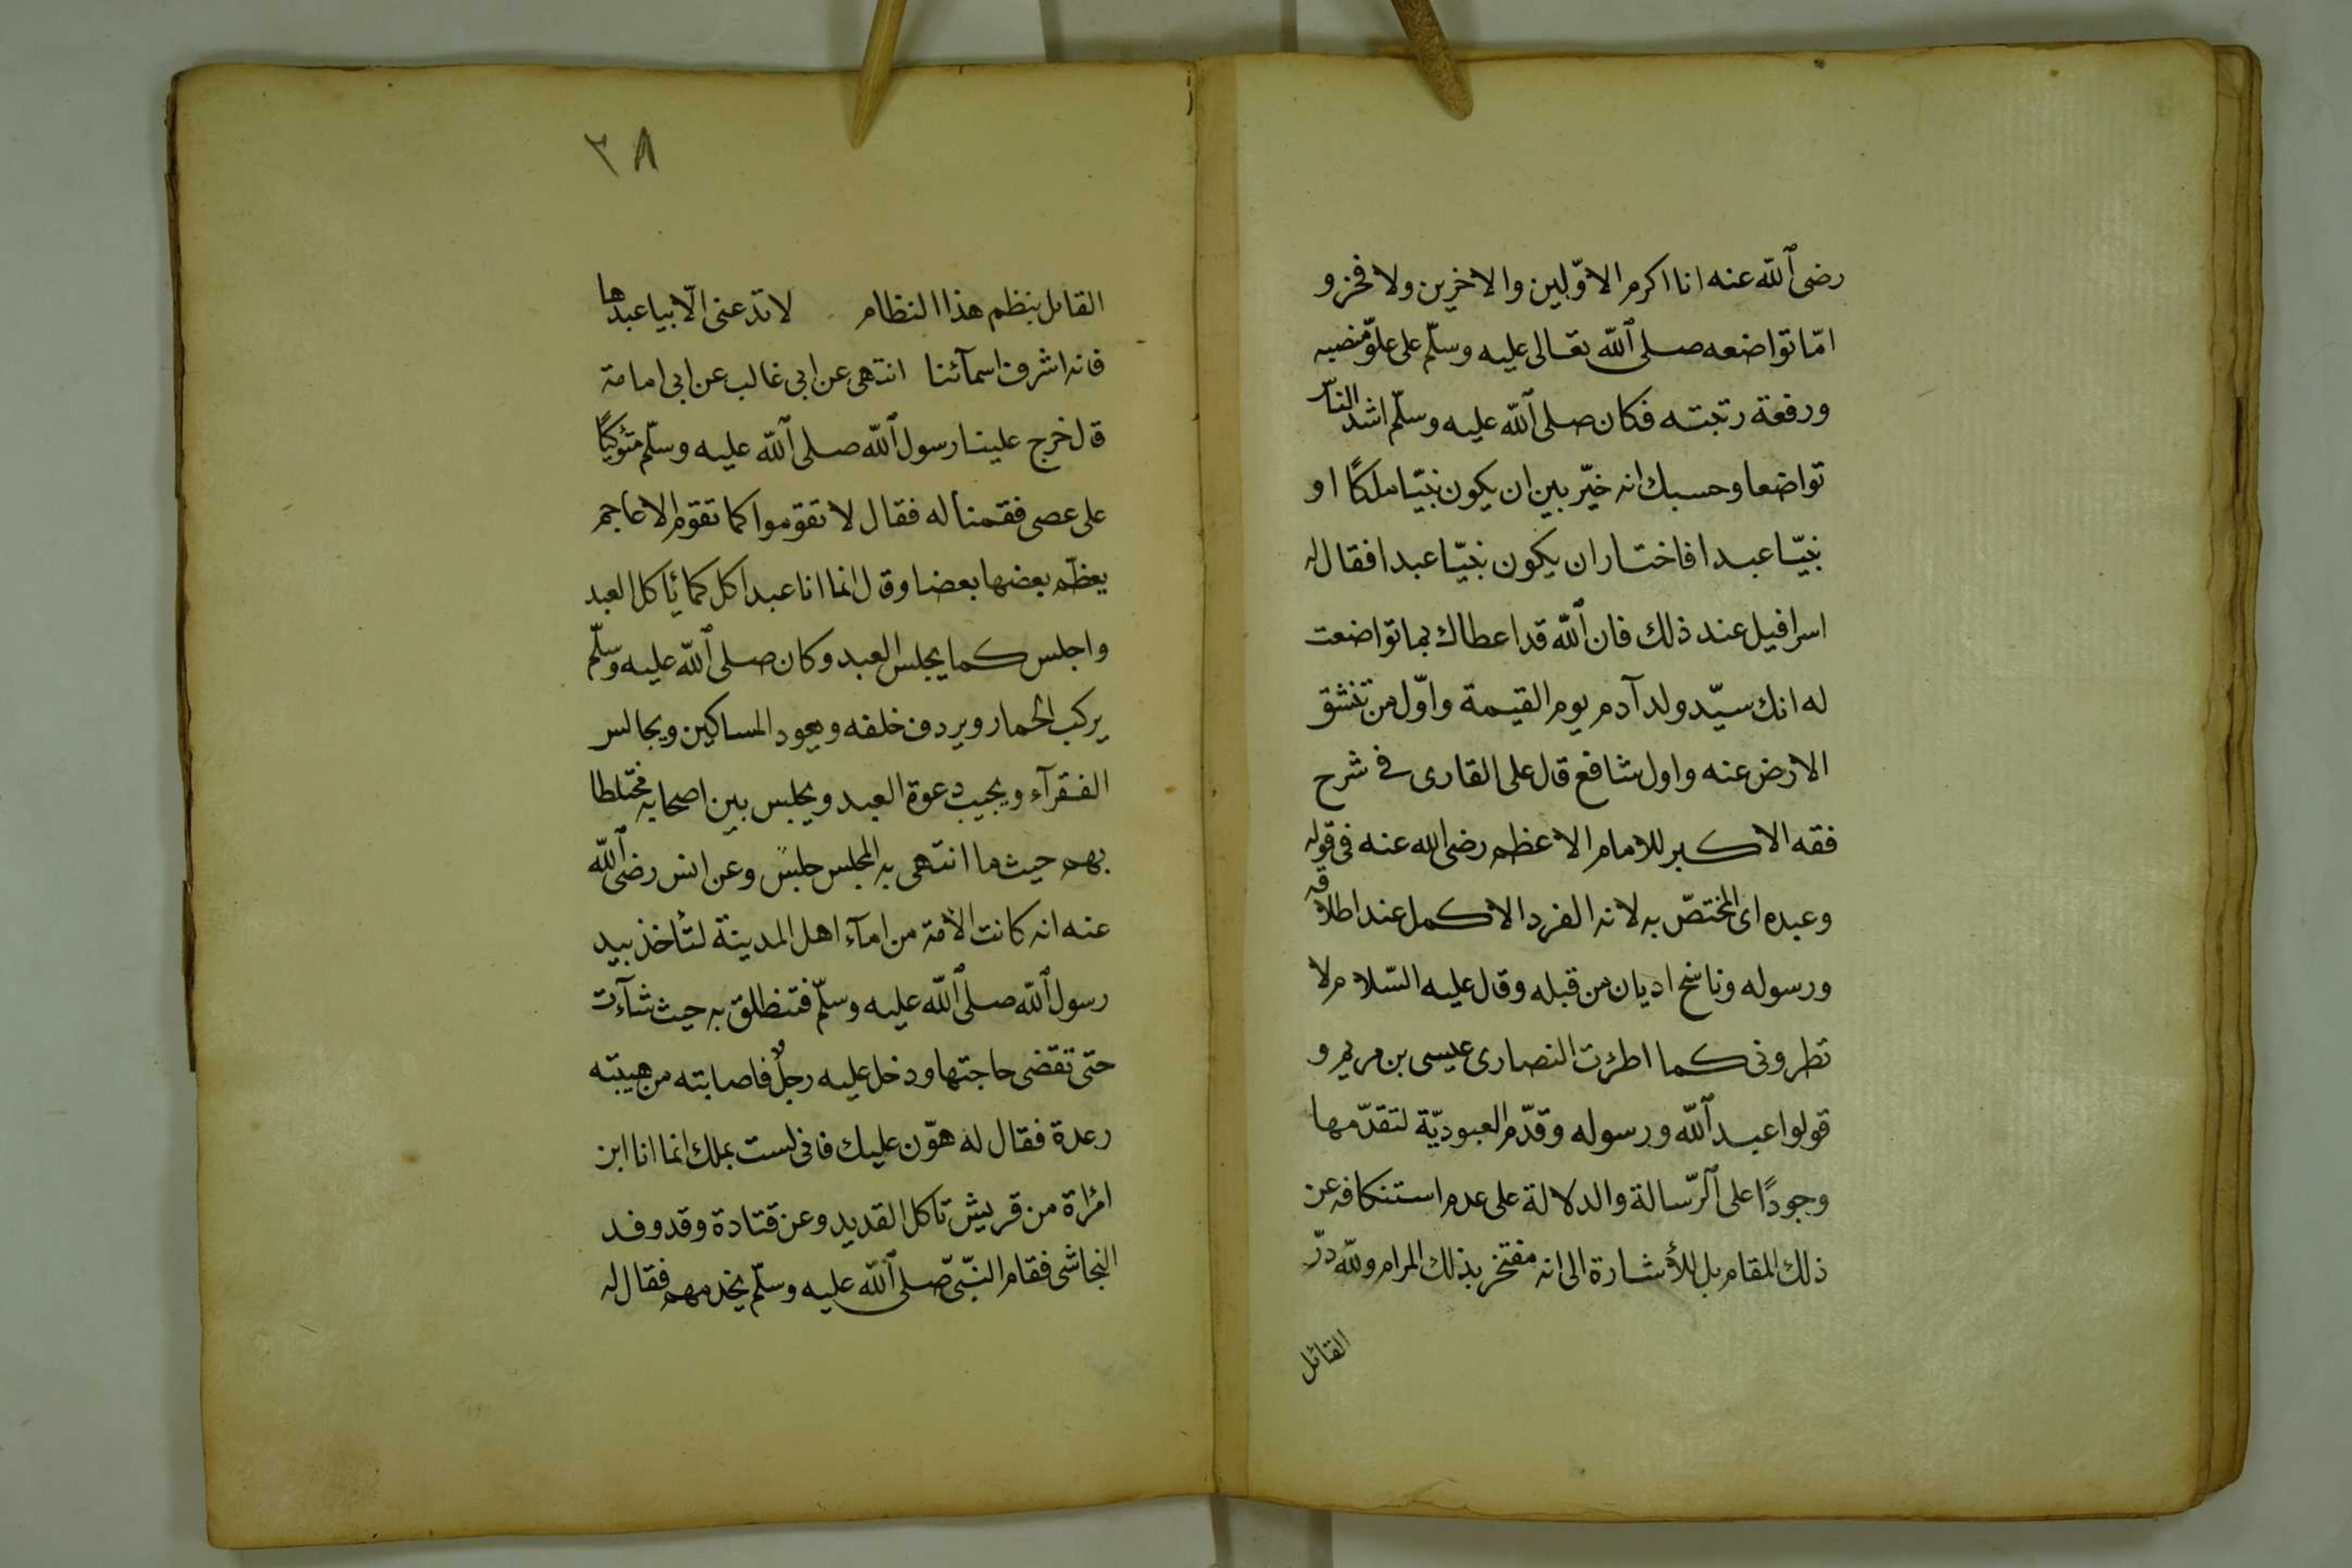 رضى الله عنه انا اكرم الاوّلين والاخرين ولا فخر و
امّا تواضعه صلى الله تعالى عليه وسلّم على علوّ منصبه
ورفعة رتبته فكان صلى الله عليه وسلّم اشد الناس
تواضعا وحسبك انه خيّر بين ان يكون نبيّا ملكًا او
نبيّا عبدا فاختار ان يكون نبيّا عبدا فقال له
اسرافيل عند ذلك فان الله قد اعطاك بما تواضعت
له انك سيّد ولد آدم يوم القيمة واوّل من تنشق
الارض عنه واول شافع قال على القارى فى شرح
فقه الاكبر للامام الاعظم رضى الله عنه فى قوله
وعبده اى المختصّ به لانه الفرد الاكمل عند اطلاقه
ورسوله وناسخ اديان من قبله وقال عليه السّلام لا
تطرونى كما اطرت النصارى عيسى بن مريم و
قولوا عبد الله ورسوله وقدّم العبوديّة لتقدّمها
وجودًا على الرّسالة والدلالة على عدم استنكافه عن
ذلك المقام بل للأشارة الى انه مفتخر بذلك المرام ولله درّ
القائل
٣٨
القائل بنظم هذا النظام لا تدعنى الّا بيا عبدها
فانه اشرف اسمآئنا انتهى عن ابى غالب عن ابى امامة
قال خرج علينا رسول الله صلى الله عليه وسلّم متوكئًا
على عصى فقمنا له فقال لا تقوموا كما تقوم الاعاجم
يعظّم بعضها بعضا وقال انما انا عبد اكل كما يأكل العبد
واجلس كما يجلس العبد وكان صلى الله عليه وسلّم
يركب الحمار ويردف خلفه ويعود المساكين ويجالس
الفقرآء ويجيب دعوة العبد ويجلس بين اصحابه مختلطا
بهم حيث ما انتهى به المجلس جلس وعن انس رضى الله
عنه انه كانت الامة من امآء اهل المدينة لتأخذ بيد
رسول الله صلى الله عليه وسلّم فتنطلق به حيث شآءت
حتى تقضى حاجتها ودخل عليه رجلٌ فاصابته من هيبته
رعدة فقال له هوّن عليك فانى لست بملك انما انا ابن
امرأة من قريش تأكل القديد وعن قتادة وقد وفد
النجاشى فقام النّبىّ صلى الله عليه وسلّم يخدمهم فقال له